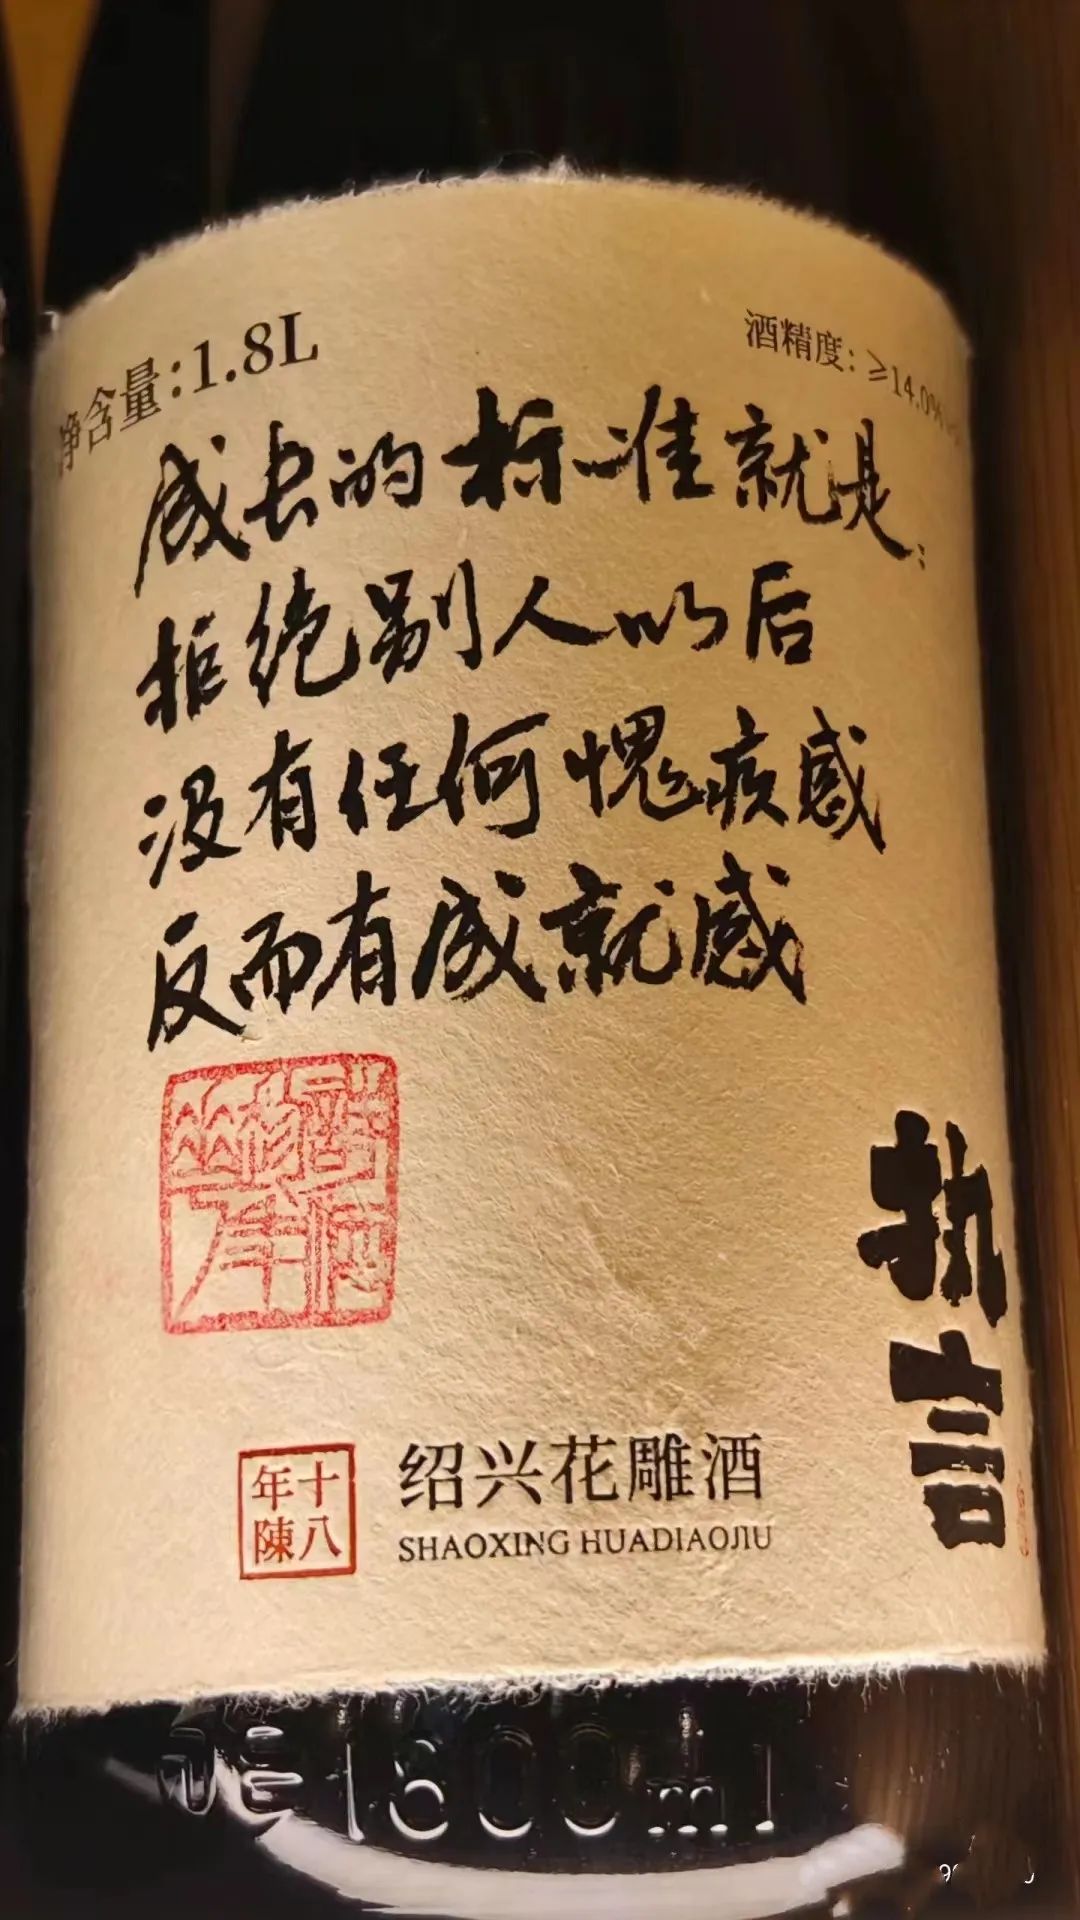 净含量:1.8L
酒精度:≥14.0%vol
成长的标准就是:
拒绝别人以后
没有任何愧疚感
反而有成就感
执言
十八
年陳
绍兴花雕酒
SHAOXING HUADIAOJIU